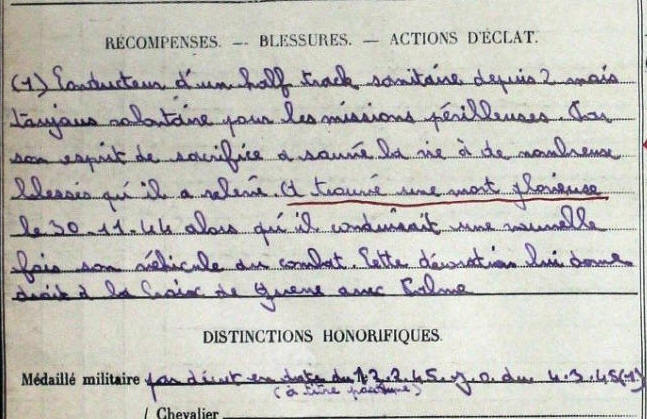 RÉCOMPENSES. — BLESSURES. — ACTIONS D'ÉCLAT.
(1) Conducteur d'un half track sanitaire depuis 2 mois
toujours volontaire pour les missions périlleuses. Par
son esprit de sacrifice a sauvé la vie à de nombreux
blessés qu'il a relevé. A trouvé une mort glorieuse
le 30-11-44 alors qu'il conduisait une nouvelle
fois son véhicule au combat. Cette décoration lui donne
droit à la Croix de Guerre avec Palme
DISTINCTIONS HONORIFIQUES.
Médaillé militaire par décret en date du 12.2.45. J.O. du 4.3.45(1)
(à titre posthume)
/ Chevalier